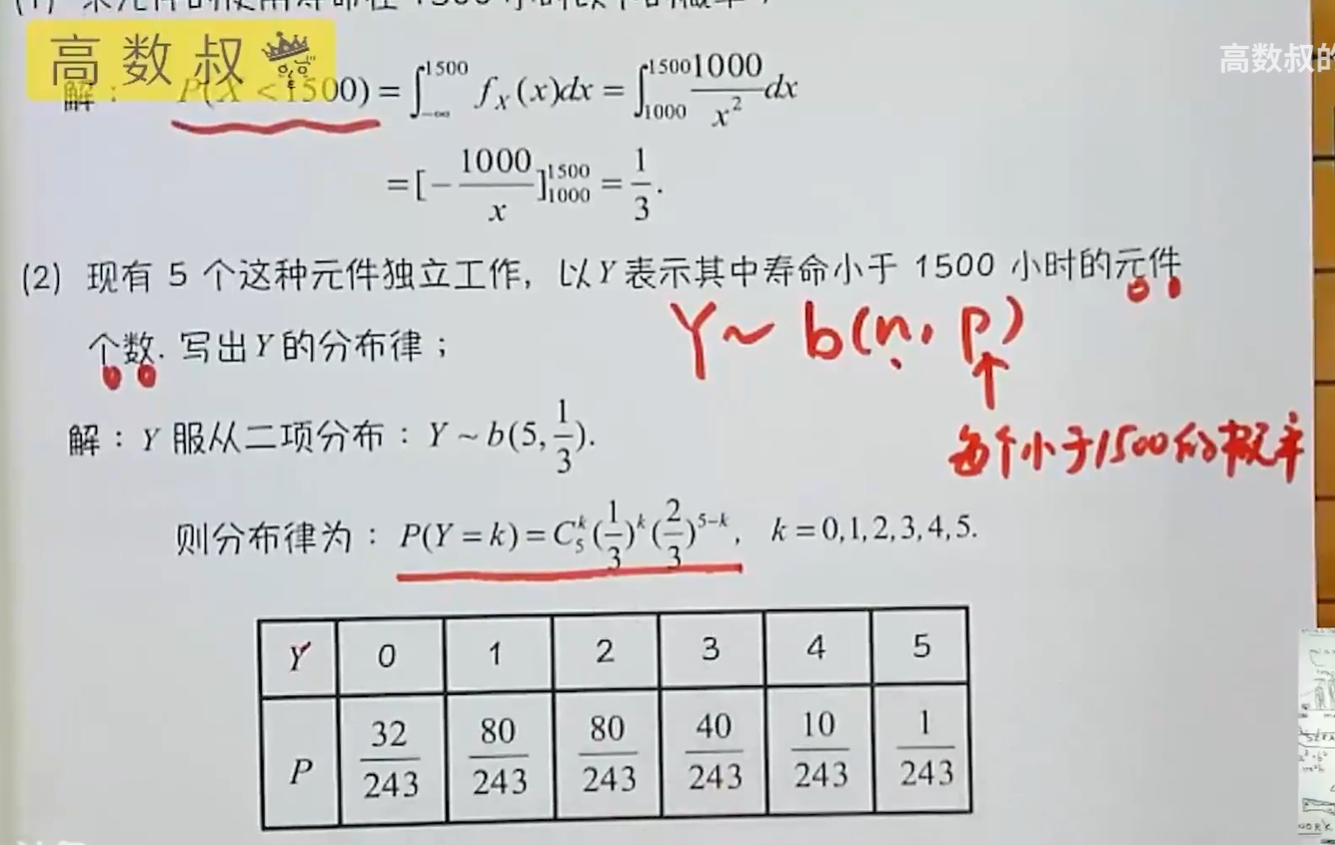 高数叔
高数叔的
解： P(X<1500) = ∫_{-∞}^{1500} f_X(x)dx = ∫_{1000}^{1500} 1000/x² dx
= [-1000/x]_{1000}^{1500} = 1/3.
(2) 现有 5 个这种元件独立工作, 以 Y 表示其中寿命小于 1500 小时的元件
个数. 写出 Y 的分布律；
Y~b(n, p)
↑
每个小于1500的概率
解：Y 服从二项分布：Y ~ b(5, 1/3).
则分布律为：P(Y = k) = C_5^k (1/3)^k (2/3)^{5-k}, k = 0,1,2,3,4,5.
Y 0 1 2 3 4 5
P 32/243 80/243 80/243 40/243 10/243 1/243